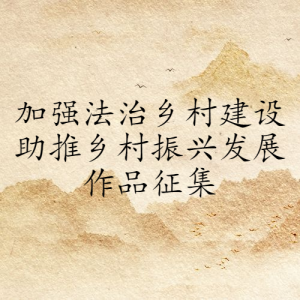 加强法治乡村建设
助推乡村振兴发展
作品征集